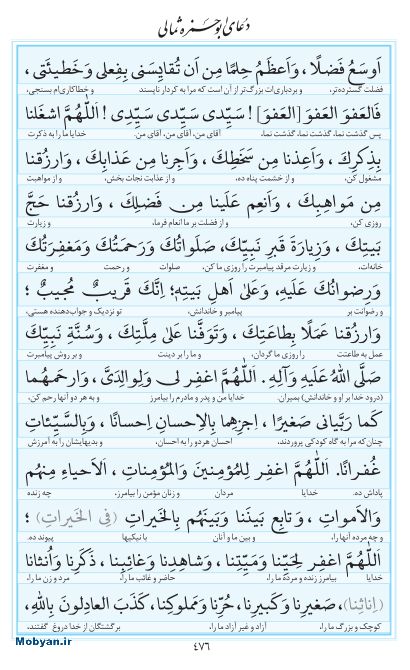 دعای ابوحمزه ثمالی
اَوسَعُ فَضلًا ، وَاَعظَمُ حِلمًا مِن اَن تُقايِسَنی بِفِعلی وَ خَطيئَتی ،
فضلت گسترده‌تر، و بردباری‌ات بزرگ‌تر از آن است که مرا به کردار ناپسند و خطاکاری‌ام بسنجی،
فَالعَفوَ العَفوَ [العَفوَ] ! سَيِّدی سَيِّدی سَيِّدی ! اَللّٰهُمَّ اشغَلنا
پس گذشت نما، گذشت نما، گذشت نما، آقای من، آقای من، آقای من. خدایا ما را به ذکرت
بِذِكرِكَ ، وَ اَعِذنا مِن سَخَطِكَ ، وَ اَجِرنا مِن عَذابِكَ ، وَارزُقنا
مشغول کن، و از خشمت پناه ده، و از عذابت نجات بخش، و از مواهبت
مِن مَواهِبِكَ ، وَ اَنعِم عَلَينا مِن فَضلِكَ ، وَ ارزُقنا حَجَّ
روزی کن، و از فضلت بر ما انعام فرما، و زیارت
بَيتِكَ ، وَ زِيارَةَ قَبرِ نَبِيِّكَ، صَلَواتُكَ وَ رَحمَتُكَ وَ مَغفِرَتُكَ
خانه‌ات، و زیارت مرقد پیامبرت را روزی ما کن، صلوات و رحمت و مغفرت
وَ رِضوانُكَ عَلَيهِ، وَ عَلیٰ اَهلِ بَيتِهِ؛ اِنَّكَ قَريبٌ مُجيبٌ ؛
و رضوانت بر پیامبر و خاندانش، تو نزدیک و جواب‌دهنده هستی،
وَارزُقنا عَمَلًا بِطاعَتِكَ ، وَ تَوَفَّنا عَلیٰ مِلَّتِكَ ، وَ سُنَّةِ نَبِيِّكَ
عمل به طاعتت را روزی ما گردان، و ما را بر دینت و بر روش پیامبرت
صَلَّی اللّٰهُ عَلَيهِ وَآلِهِ . اَللّٰهُمَّ اغفِر لی وَ لِوالِدَیَّ ، وَارحَمهُما
(درود خدا بر او و خاندانش) بمیران. خدایا من و پدر و مادرم را بیامرز و به هر دو آنها رحم کن،
كَما رَبَّيانی صَغيرًا ، اِجزِهِما بِالاِحسانِ اِحسانًا ، وَ بِالسَّيِّئاتِ
چنان‌که مرا به گاه کودکی پروردند، احسان هر دو را به احسان، و بدیهایشان را به آمرزش
غُفرانًا. اَللّٰهُمَّ اغفِر لِلمُؤمِنينَ وَالمُؤمِناتِ ، اَلاَحياءِ مِنهُم
پاداش ده. خدایا مردان و زنان مؤمن را بیامرز، چه زنده
وَالاَمواتِ ، وَ تابِع بَينَنا وَ بَينَهُم بِالخَيراتِ (فِی الخَيراتِ) ؛
و چه مرده آنها را، و بین ما و آنان با نیکیها پیوند ده.
اَللّٰهُمَّ اغفِر لِحَيِّنا وَ مَيِّتِنا ، وَ شاهِدِنا وَ غائِبِنا ، ذَكَرِنا وَ اُنثانا
خدایا بیامرز زنده و مردهٔ ما را، حاضر و غائب ما را، مرد و زن ما را،
(اِناثِنا) ، صَغيرِنا وَ كَبيرِنا، حُرِّنا وَ مَملوكِنا، كَذَبَ العادِلونَ بِاللّٰهِ،
کوچک و بزرگ ما را، آزاد و غیر آزاد ما را، برگشتگان از خدا دروغ گفتند،
٤٧٦
Mobyan.ir